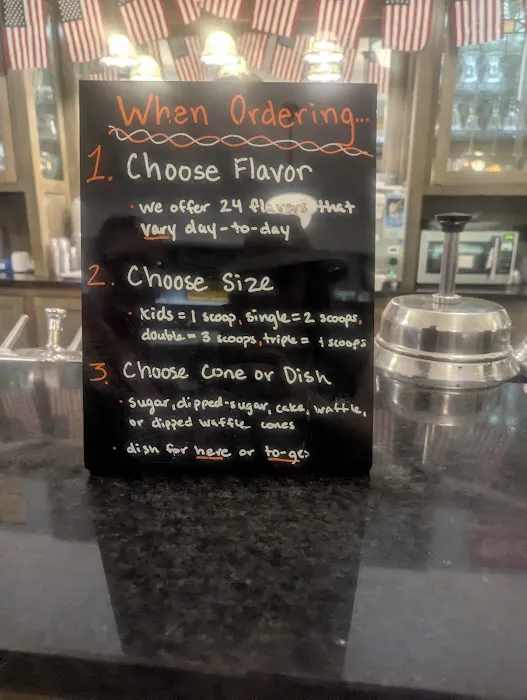 When Ordering...
1. Choose Flavor
• we offer 24 flavors that
vary day-to-day
2. Choose Size
• kids = 1 scoop, single = 2 scoops,
double = 3 scoops, triple = scoops
3. Choose Cone or Dish
• sugar, dipped-sugar, cake, waffle,
or dipped waffle cones
• dish for here or to-go